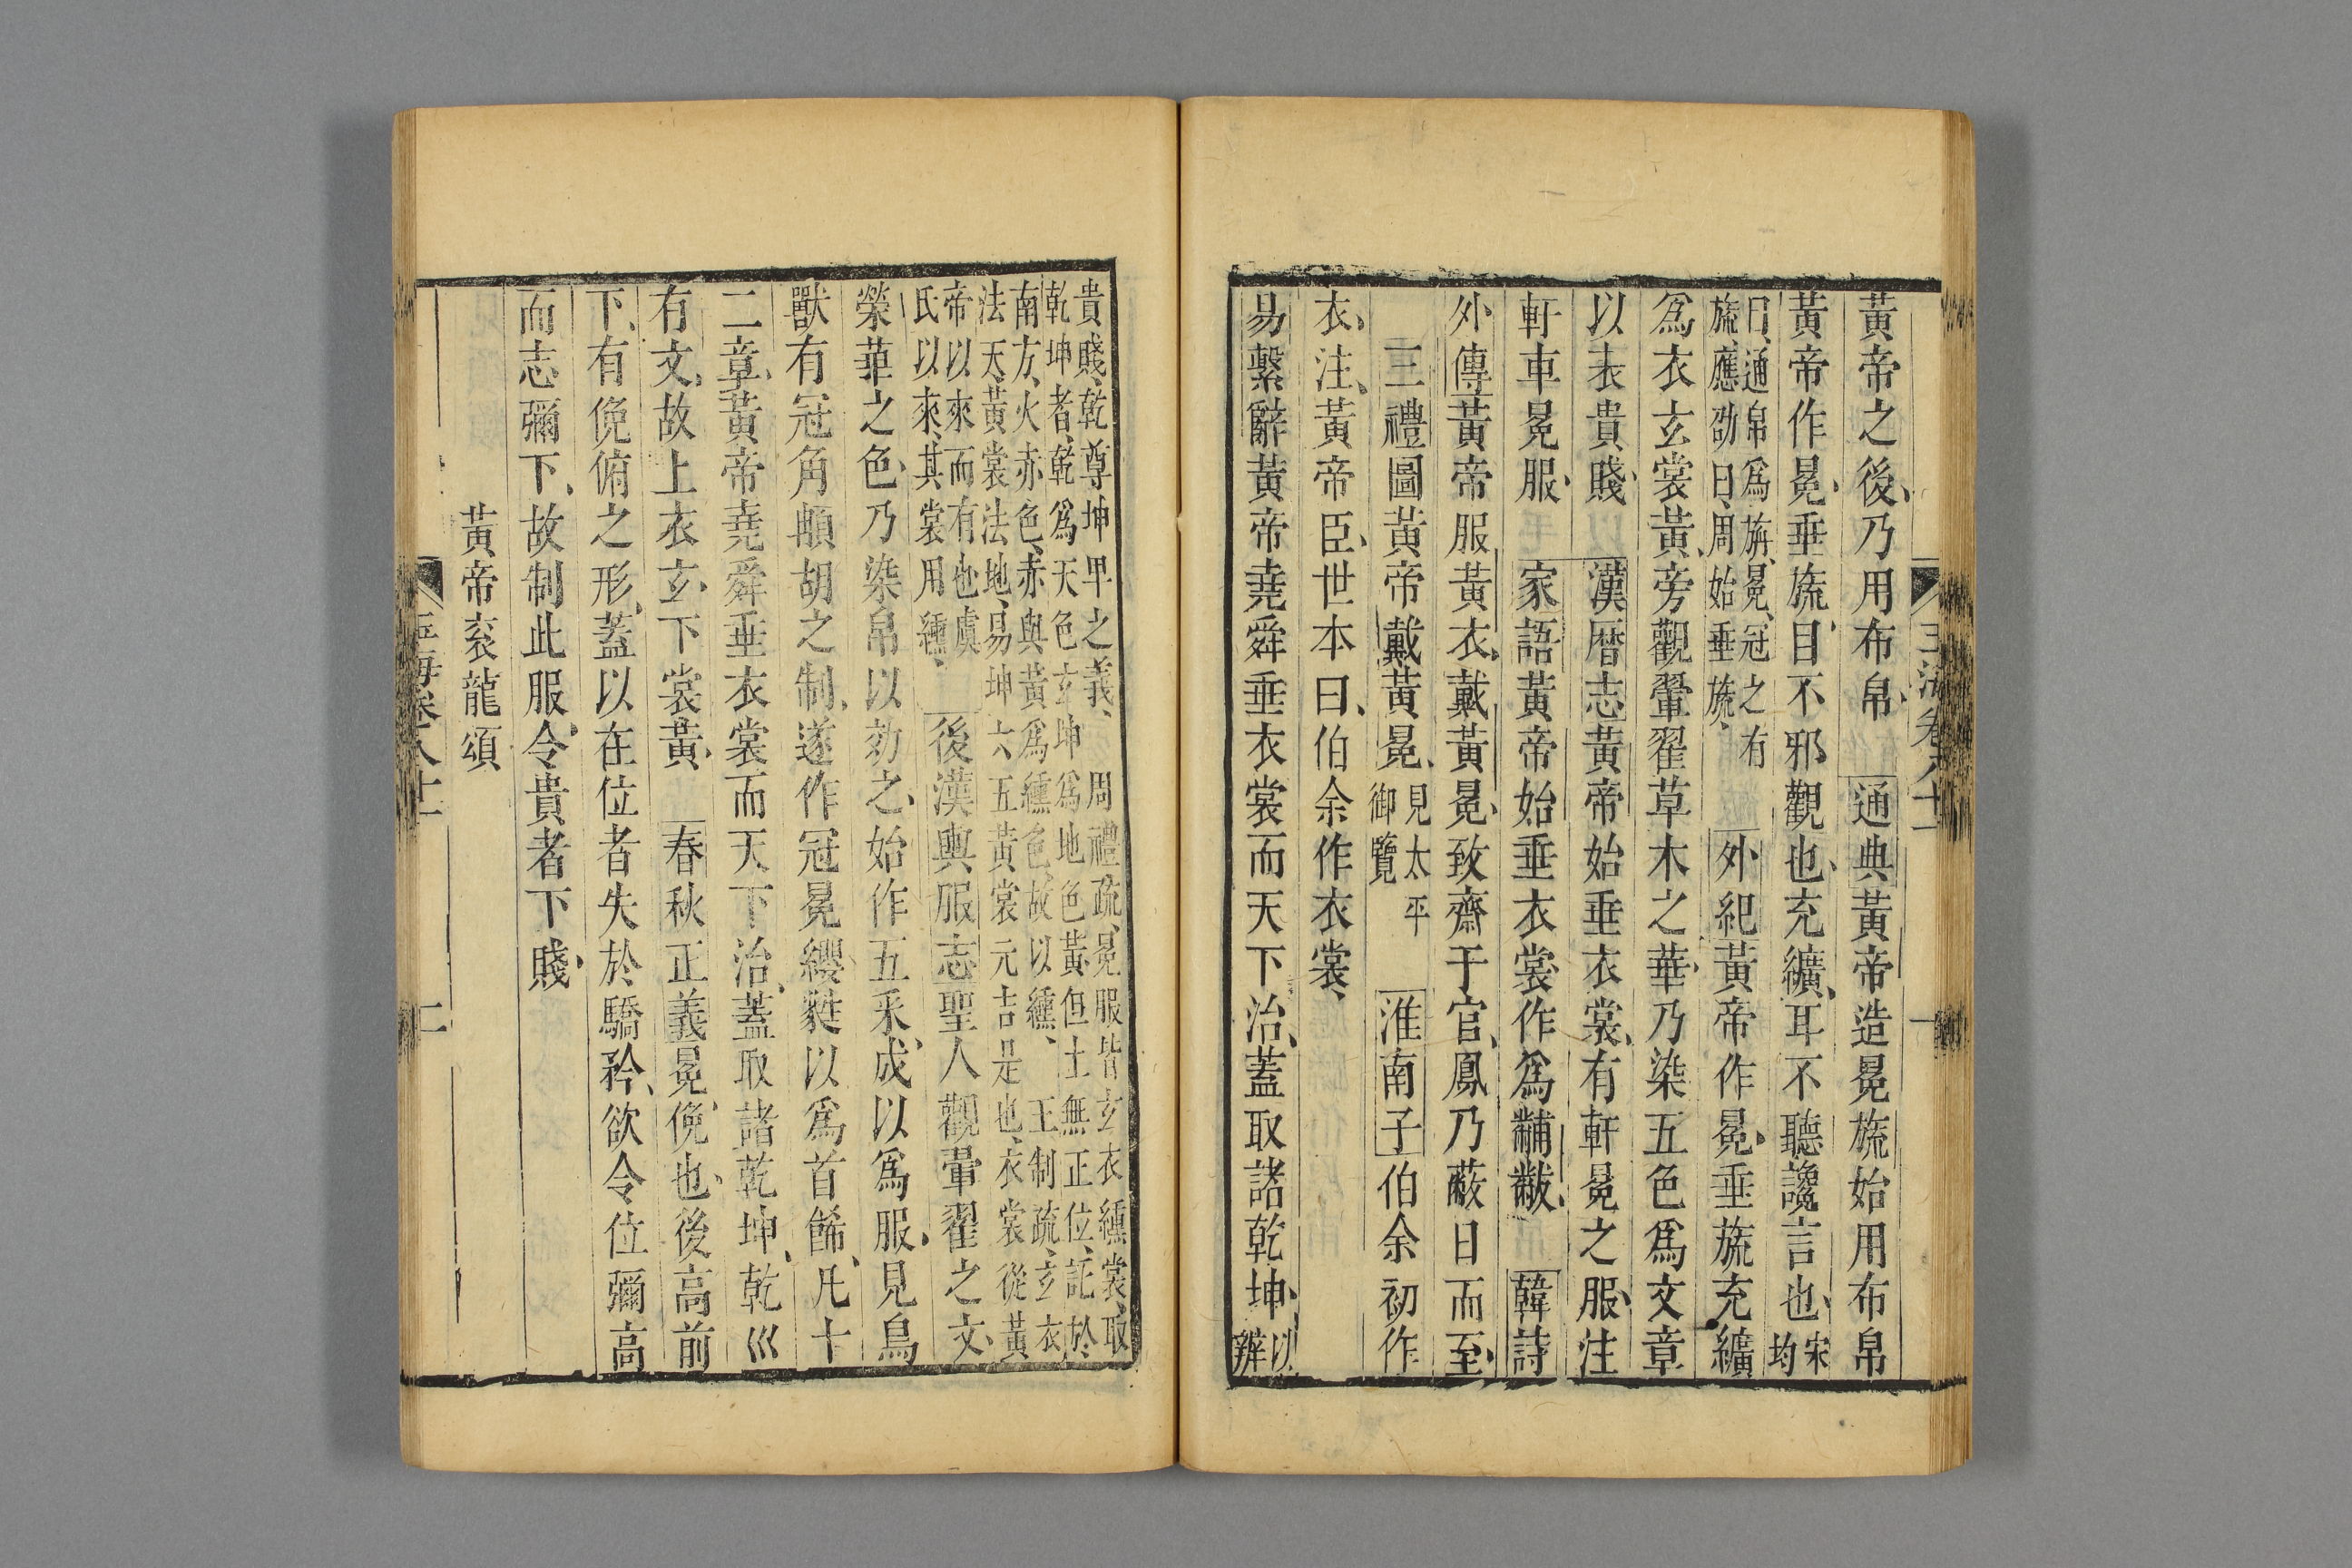 黃帝之後、乃用布帛、通典黃帝造冕旒始用布帛
黃帝作冕、垂旒、目不邪觀也、充纊、耳不聽讒言也、宋均
曰、通帛爲旃、冕、冠之有
旒、應劭曰、周始垂旒、
外紀黃帝作冕、垂旒充纊
爲衣玄裳黃、旁觀翬翟草木之華、乃染五色爲文章
以表貴賤、漢曆志黃帝始垂衣裳、有軒冕之服、注
軒車冕服、家語黃帝始垂衣裳作爲黼黻、韓詩
外傳黃帝服黃衣、戴黃冕、致齋于宮、鳳乃蔽日而至、
三禮圖黃帝戴黃冕、見太平
御覽
淮南子伯余初作
衣、注、黃帝臣、世本曰、伯余作衣裳、
易繫辭黃帝堯舜垂衣裳而天下治、蓋取諸乾坤、以
辨
玉海卷八十一
一
貴賤、乾尊坤卑之義、周禮疏、冕服皆玄衣纁裳、取
乾坤者、乾爲天色玄坤爲地色黃但土無正位、託於
南方、火赤色、赤與黃爲纁色、故以纁、王制疏、玄衣
法天、黃裳法地、易坤六五黃裳元吉是也、衣裳從黃
帝以來而有也虞
氏以來、其裳用纁、
後漢輿服志聖人觀翬翟之文、
榮華之色、乃染帛以効之、始作五采、成以爲服、見鳥
獸有冠角䫇胡之制、遂作冠冕纓蕤以爲首飾、凡十
二章、黃帝堯舜垂衣裳而天下治、蓋取諸乾坤、乾巛
有文、故上衣玄、下裳黃、春秋正義冕、俛也、後高前
下、有俛俯之形、蓋以在位者失於驕矜、欲令位彌高
而志彌下、故制此服、令貴者下賤、
黃帝衮龍頌
玉海卷八十一
二